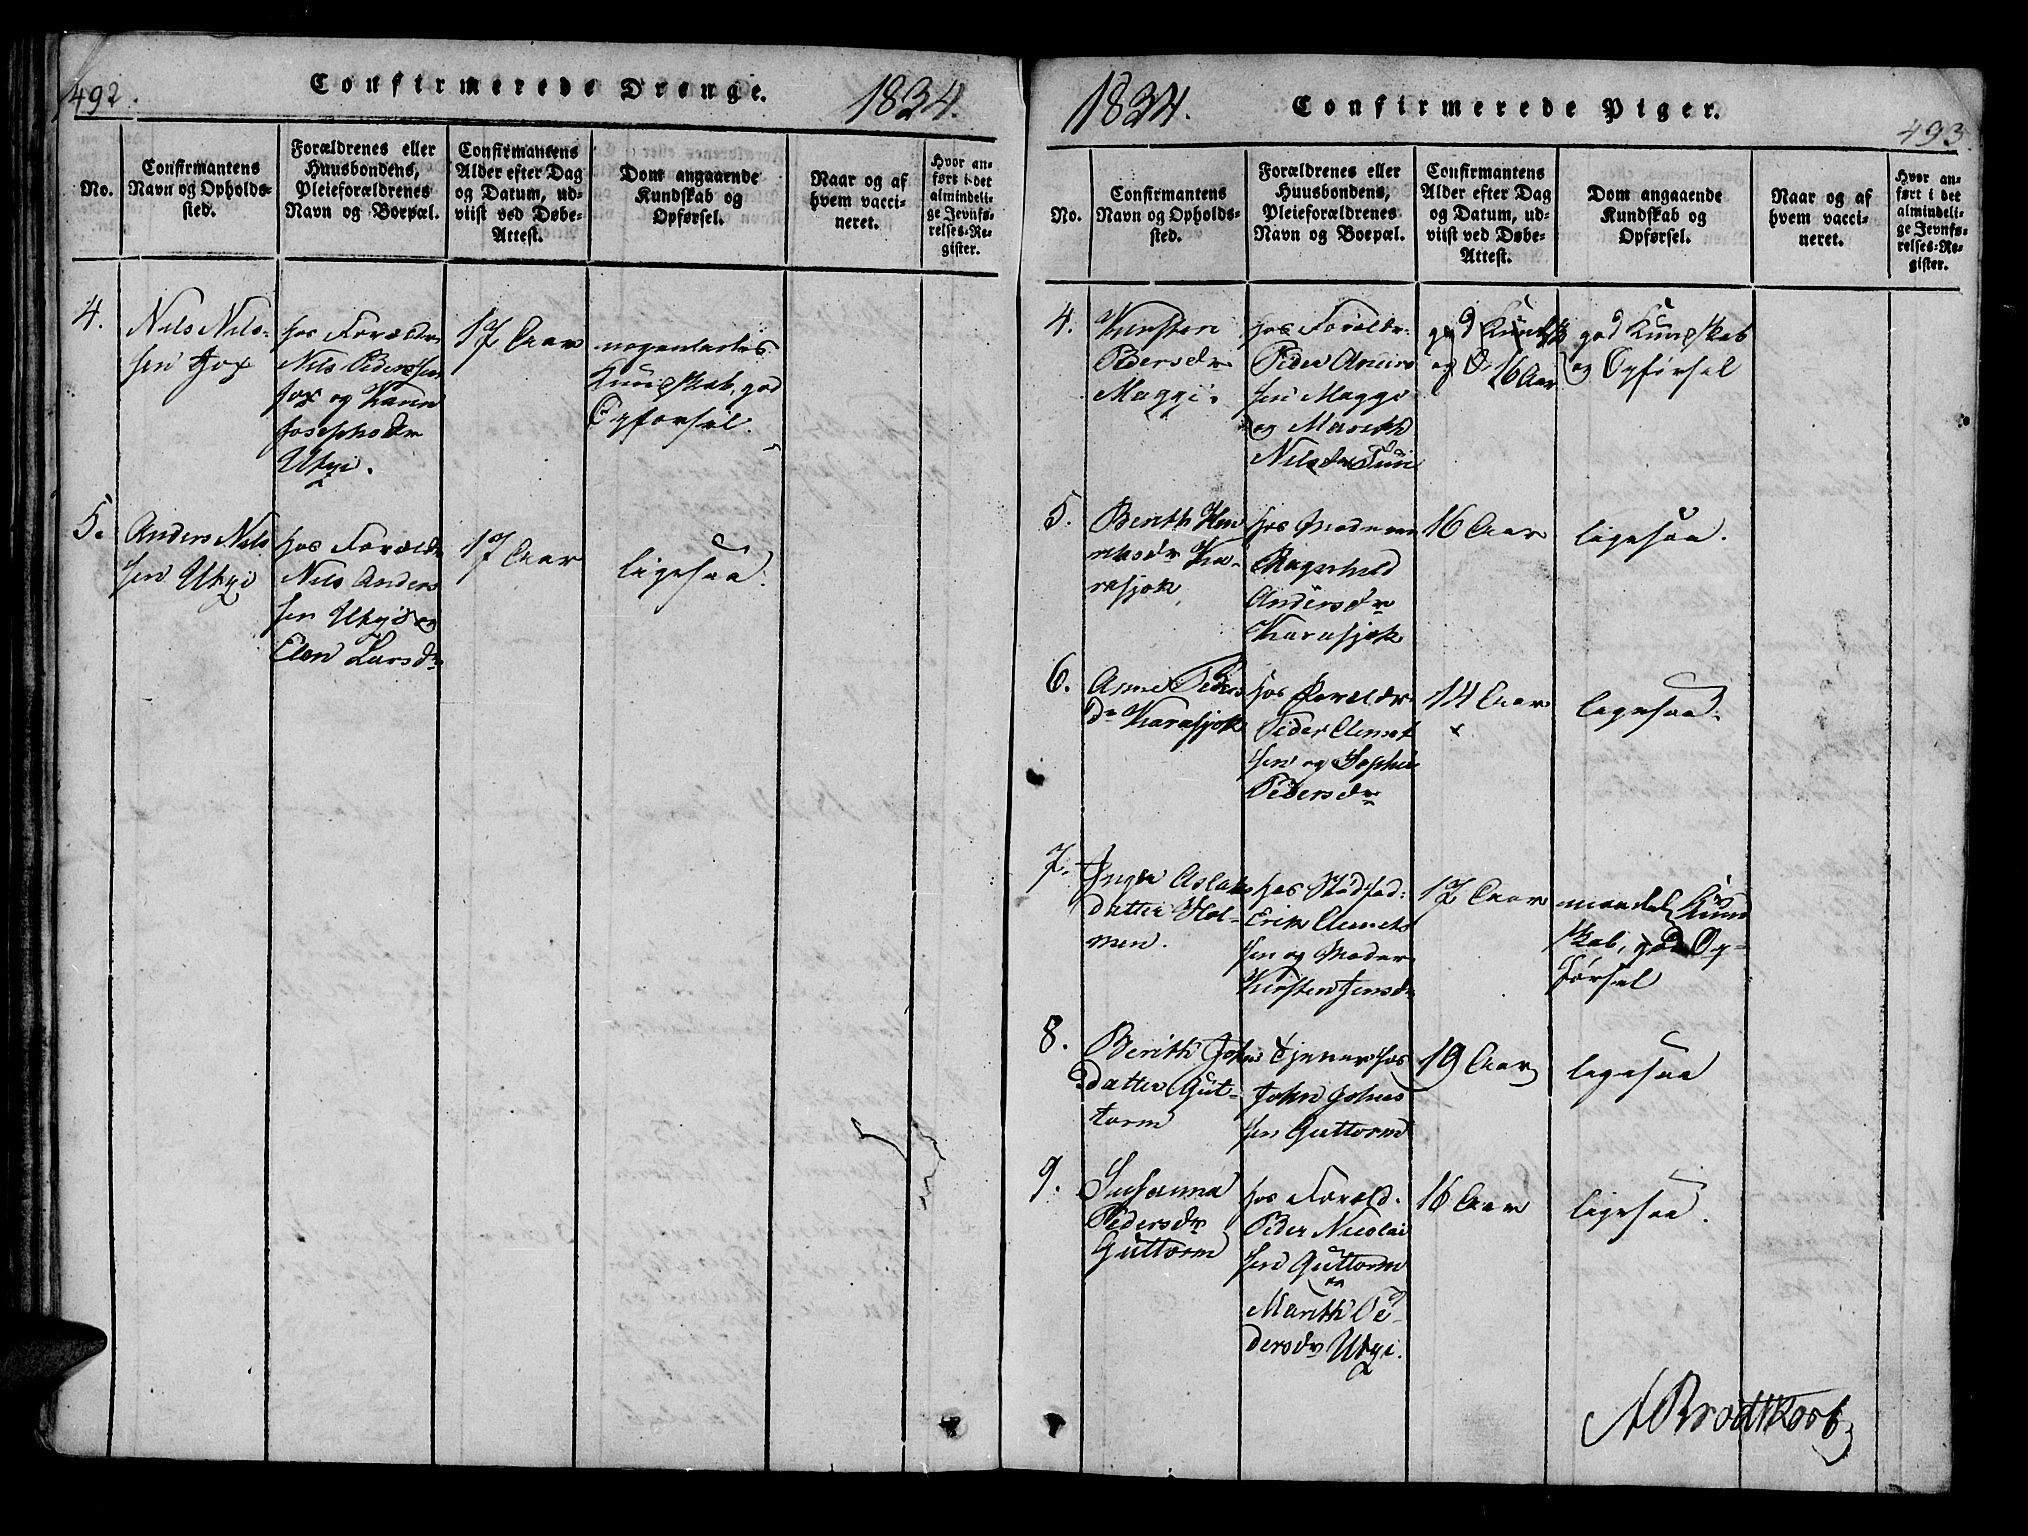 492.
Confirmerede Drenge.
1834.
No.
Confirmantens
Navn og Opholds-
sted.
Forældrenes eller
Huusbondens,
Pleieforældrenes
Navn og Boepæl.
Confirmantens
Alder efter Dag
og Datum, ud-
viist ved Døbe-
Attest.
Dom angaaende
Kundskab og
Opførsel.
Naar og af
hvem vacci-
neret.
Hvor an-
ført i det
almindeli-
ge Jevnfø-
relses-Re-
gister.
4.
Nils Nils-
sen Fox
hos Forældr
Nils Pederssen
Fox og Karen
Josephsdr
Utzi.
17 Aar
nogenledes
Kundskab, god
Opførsel.
5.
Anders Nils
sen Utzi
hos Foræld
Nils Anders
sen Utzi og
Elen Larsdr
17 Aar
ligesaa.
1834.
Confirmerede Piger.
493
No.
Confirmantens
Navn og Opholds-
sted.
Forældrenes eller
Huusbondens,
Pleieforældrenes
Navn og Boepæl.
Confirmantens
Alder efter Dag
og Datum, ud-
viist ved Døbe-
Attest.
Dom angaaende
Kundskab og
Opførsel.
Naar og af
hvem vacci-
neret.
Hvor an-
ført i det
almindeli-
ge Jevnfø-
relses-Re-
gister.
4.
Kirsten
Pedersdr
Maggi.
hos Forældr.
Peder
sen Maggi
og Marith
Nilsdr
god
og
16 Aar
god Kundskab
og Opførsel
5.
Berith Hen
riksdr Ka-
rasjok
hos Moderen
Ragnhild
Andersdr
Karasjok
16 Aar
ligesaa.
6.
Anne Peders
dr Karasjok
hos Forældr
Peder Clemet
sen og Sophie
Pedersdr
14 Aar
x
ligesaa.
7.
Inger Aslaks
datter Hol-
men.
hos Stedfad:
Erik Clemets
sen og Moder
Kirsten Jensdr
17 Aar
maadel. Kund
skab, god Op-
førsel
8.
Berith Johns
datter Gut-
torm
Tjener hos
John Johns
sen Guttorm
19 Aar
ligesaa
9.
Susanna
Pedersdr
Guttorm
hos Foræld.
Peder Nicolai
sen Guttorm
og
Marith Pe-
dersdr Utzi.
16 Aar
ligesaa.
A Brodtkorb